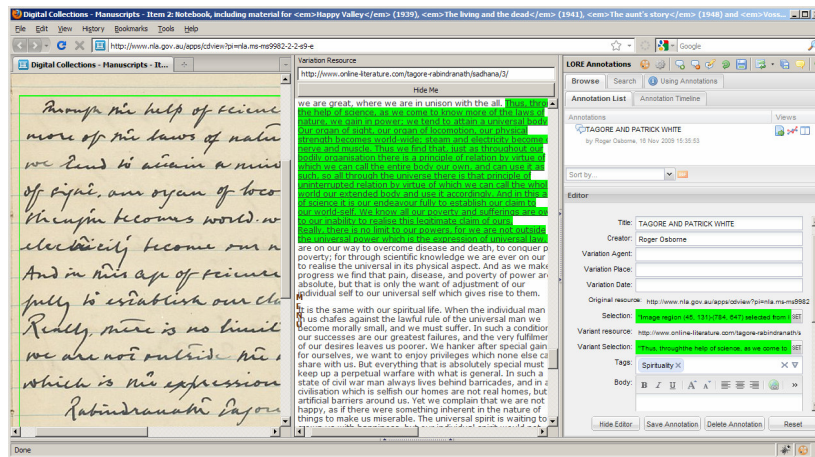 Digital Collections - Manuscripts - Item 2: Notebook, including material for <em>Happy Valley</em> (1939), <em>The living and the dead</em> (1941), <em>The aunt's story</em> (1948) and <em>Voss...
File Edit View History Bookmarks Tools Help
http://www.nla.gov.au/apps/cdview?pi=nla.ms-ms9982-2-2-s9-e
Google
Digital Collections - Manuscripts - It...
Through the help of science
more of the laws of natu
we tend to attain a univ
of sight, our organ of loco
strength becomes world-w
electricity become our n
And in this age of science
fully to establish our cla
Really, there is no limit
we are not outside the
which is the expression
Rabindranath Tagore
Variation Resource
http://www.online-literature.com/tagore-rabindranath/sadhana/3/
Hide Me
we are great, where we are in unison with the all. Thus, thro
the help of science, as we come to know more of the laws of
nature, we gain in power; we tend to attain a universal body
Our organ of sight, our organ of locomotion, our physical
strength becomes world-wide; steam and electricity become
nerve and muscle. Thus we find that, just as throughout our
bodily organisation there is a principle of relation by virtue of
which we can call the entire body our own, and can use it as
such, so all through the universe there is that principle of
uninterrupted relation by virtue of which we can call the whol
world our extended body and use it accordingly. And in this a
of science it is our endeavour fully to establish our claim to
our world-self. We know all our poverty and sufferings are ow
to our inability to realise this legitimate claim of ours.
Really, there is no limit to our powers, for we are not outside
the universal power which is the expression of universal law.
are on our way to overcome disease and death, to conquer p
poverty; for through scientific knowledge we are ever on our
to realise the universal in its physical aspect. And as we make
progress we find that pain, disease, and poverty of power are
absolute, but that is only the want of adjustment of our
individual self to our universal self which gives rise to them.
MENU
It is the same with our spiritual life. When the individual man
in us chafes against the lawful rule of the universal man we
become morally small, and we must suffer. In such a condition
our successes are our greatest failures, and the very fulfilmen
of our desires leaves us poorer. We hanker after special gain
for ourselves, we want to enjoy privileges which none else ca
share with us. But everything that is absolutely special must
keep up a perpetual warfare with what is general. In such a
state of civil war man always lives behind barricades, and in a
civilisation which is selfish our homes are not real homes, but
artificial barriers around us. Yet we complain that we are not
happy, as if there were something inherent in the nature of
things to make us miserable. The universal spirit is waiting to
LORE Annotations
Browse Search Using Annotations
Annotation List Annotation Timeline
Annotations Views
TAGORE AND PATRICK WHITE
by Roger Osborne, 15 Nov 2009 15:35:53
Sort by...
Editor
Title: TAGORE AND PATRICK WHITE
Creator: Roger Osborne
Variation Agent:
Variation Place:
Variation Date:
Original resource: http://www.nla.gov.au/apps/cdview?pi=nla.ms-ms9982
Selection: "Image region (45, 131)-(784, 647) selected from SET
Variant resource: http://www.online-literature.com/tagore-rabindranath/s
Variant Selection: "Thus, throughthe help of science, as we come to SET
Tags: Spirituality
Body: B I U A A
Hide Editor Save Annotation Delete Annotation Reset
Done